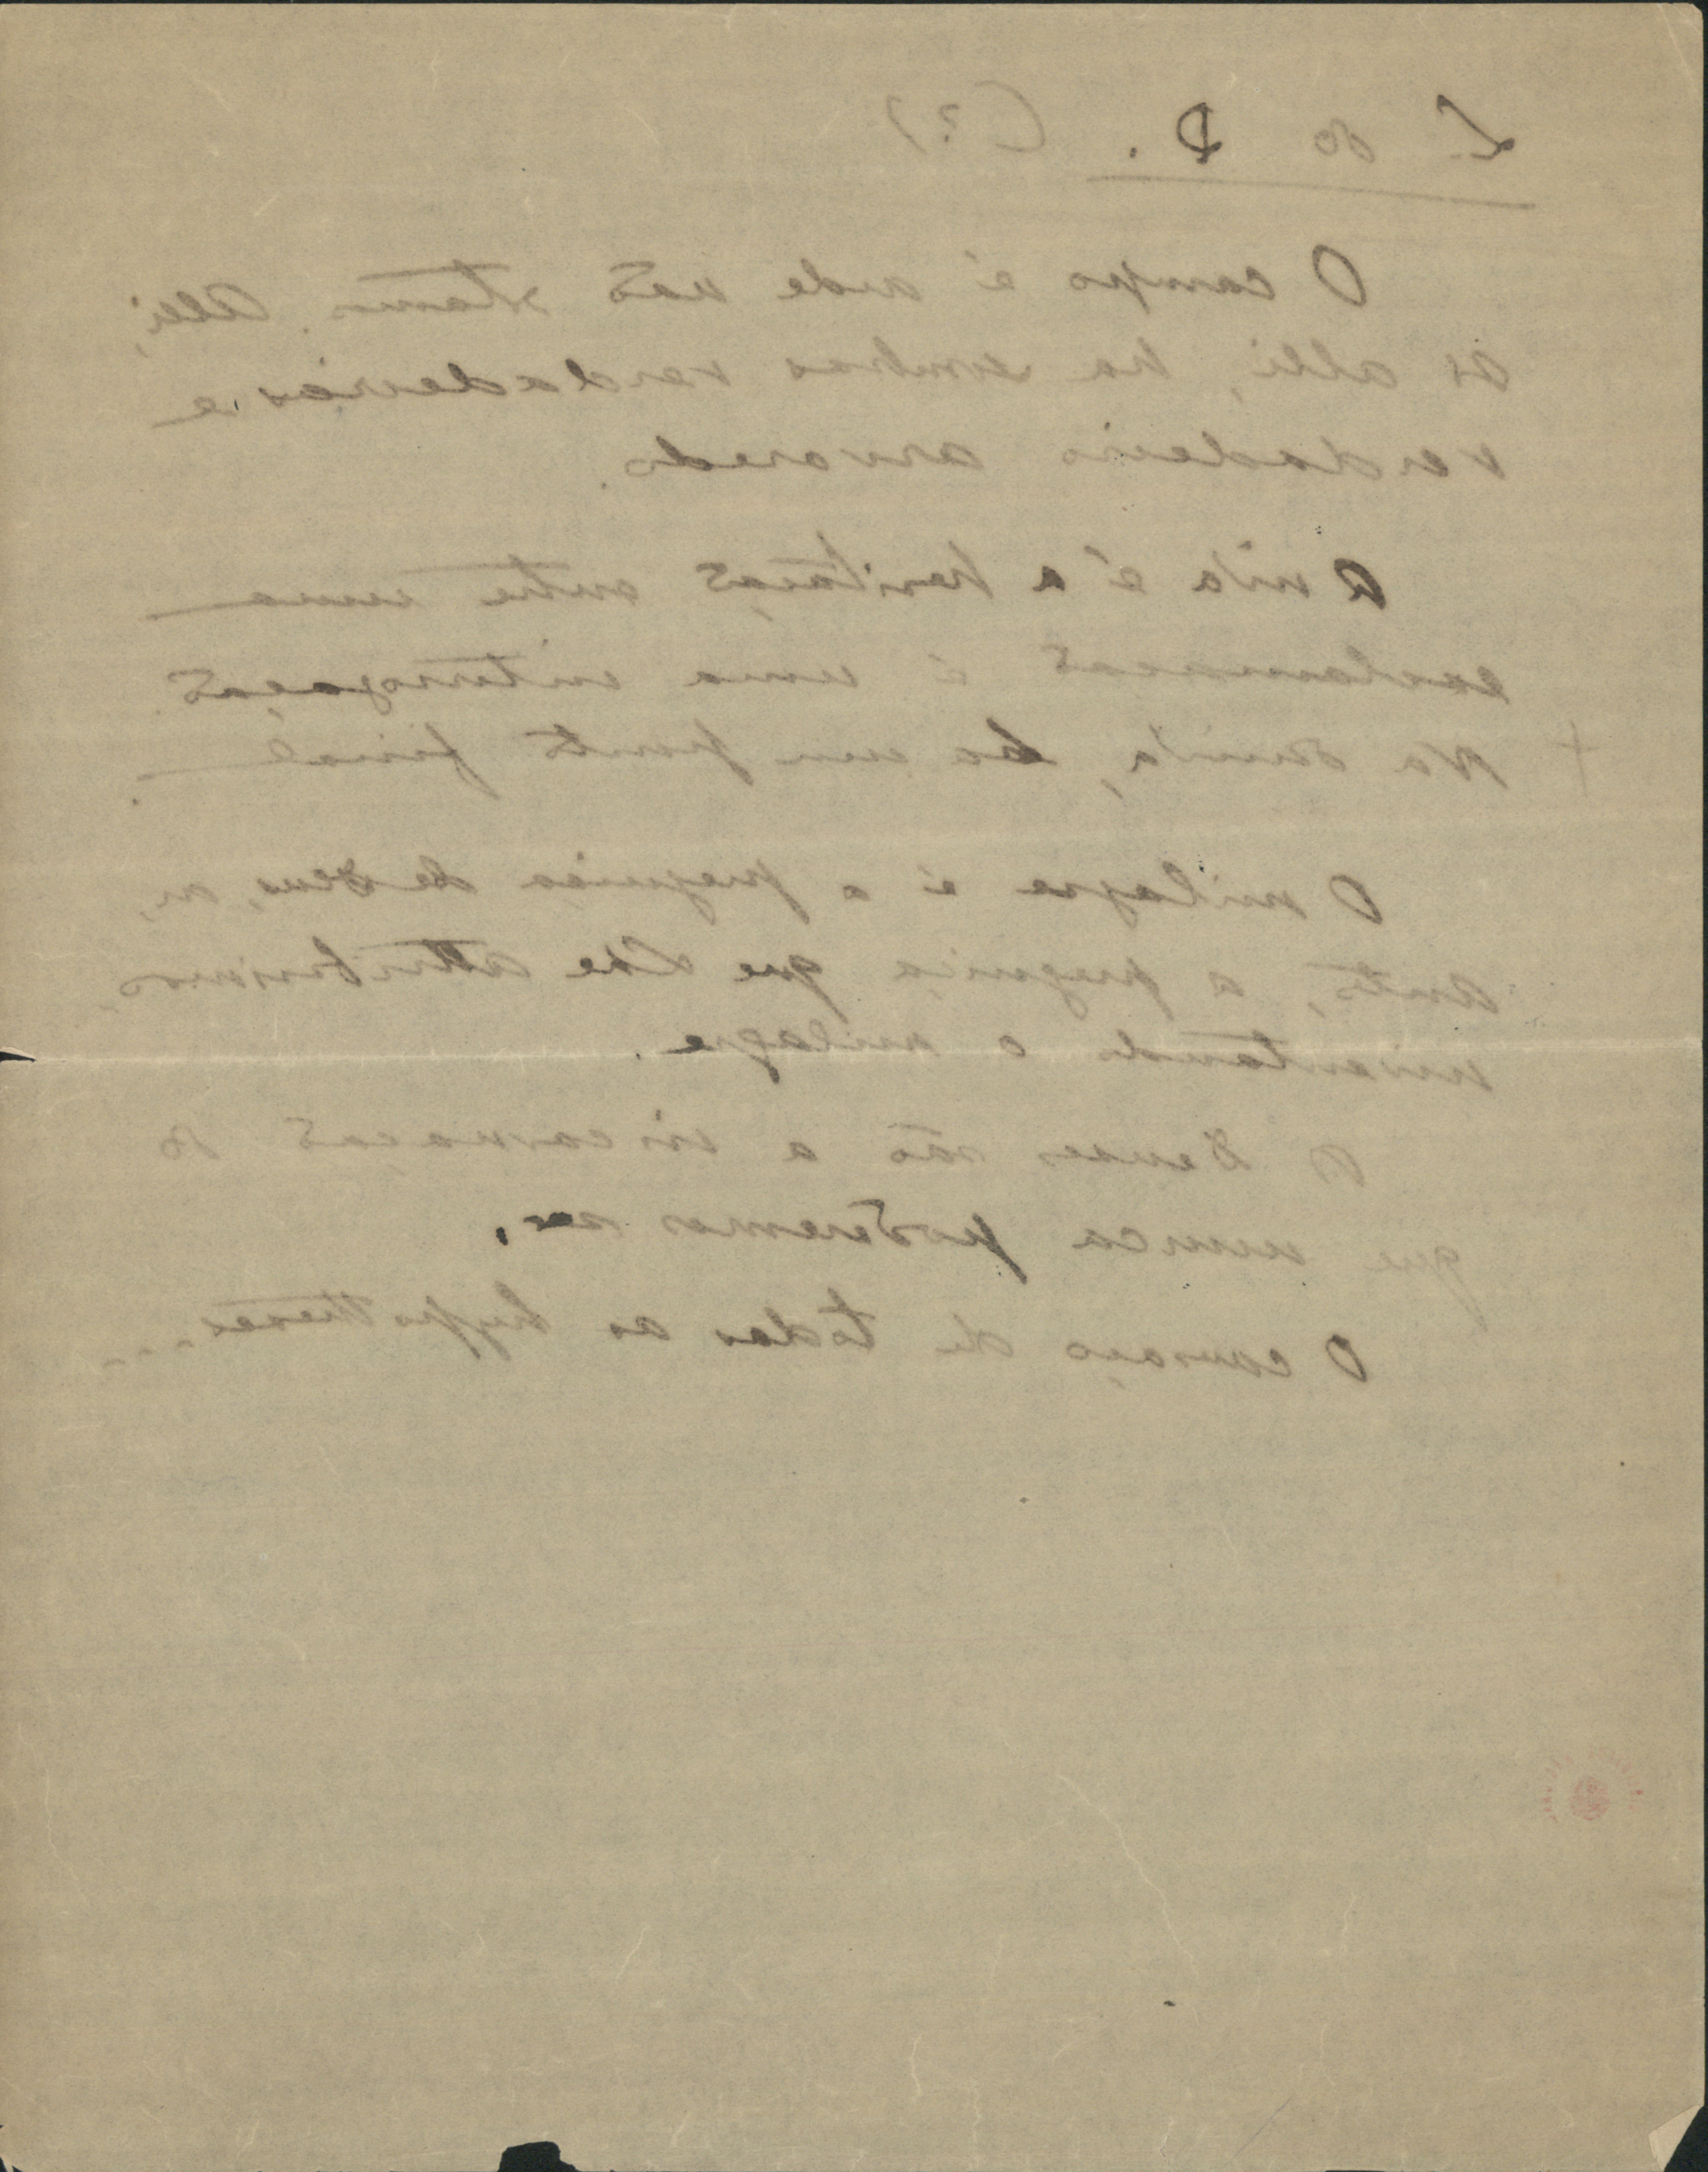 L. do D. (?)
O campo é onde não stamos. Alli,
só alli, ha sombras verdadeiras e
verdadeiro arvoredo.
A vida é a hesitação entre uma
exclamação e uma interrogação.
Na duvida, ha um ponto final.
O milagre é a preguiça de Deus, ou,
antes, a preguiça que Lhe attribuimos,
inventando o milagre.
Os Deuses são a incarnação do
que nunca poderemos ser.
O cansaço de todas as hypotheses...